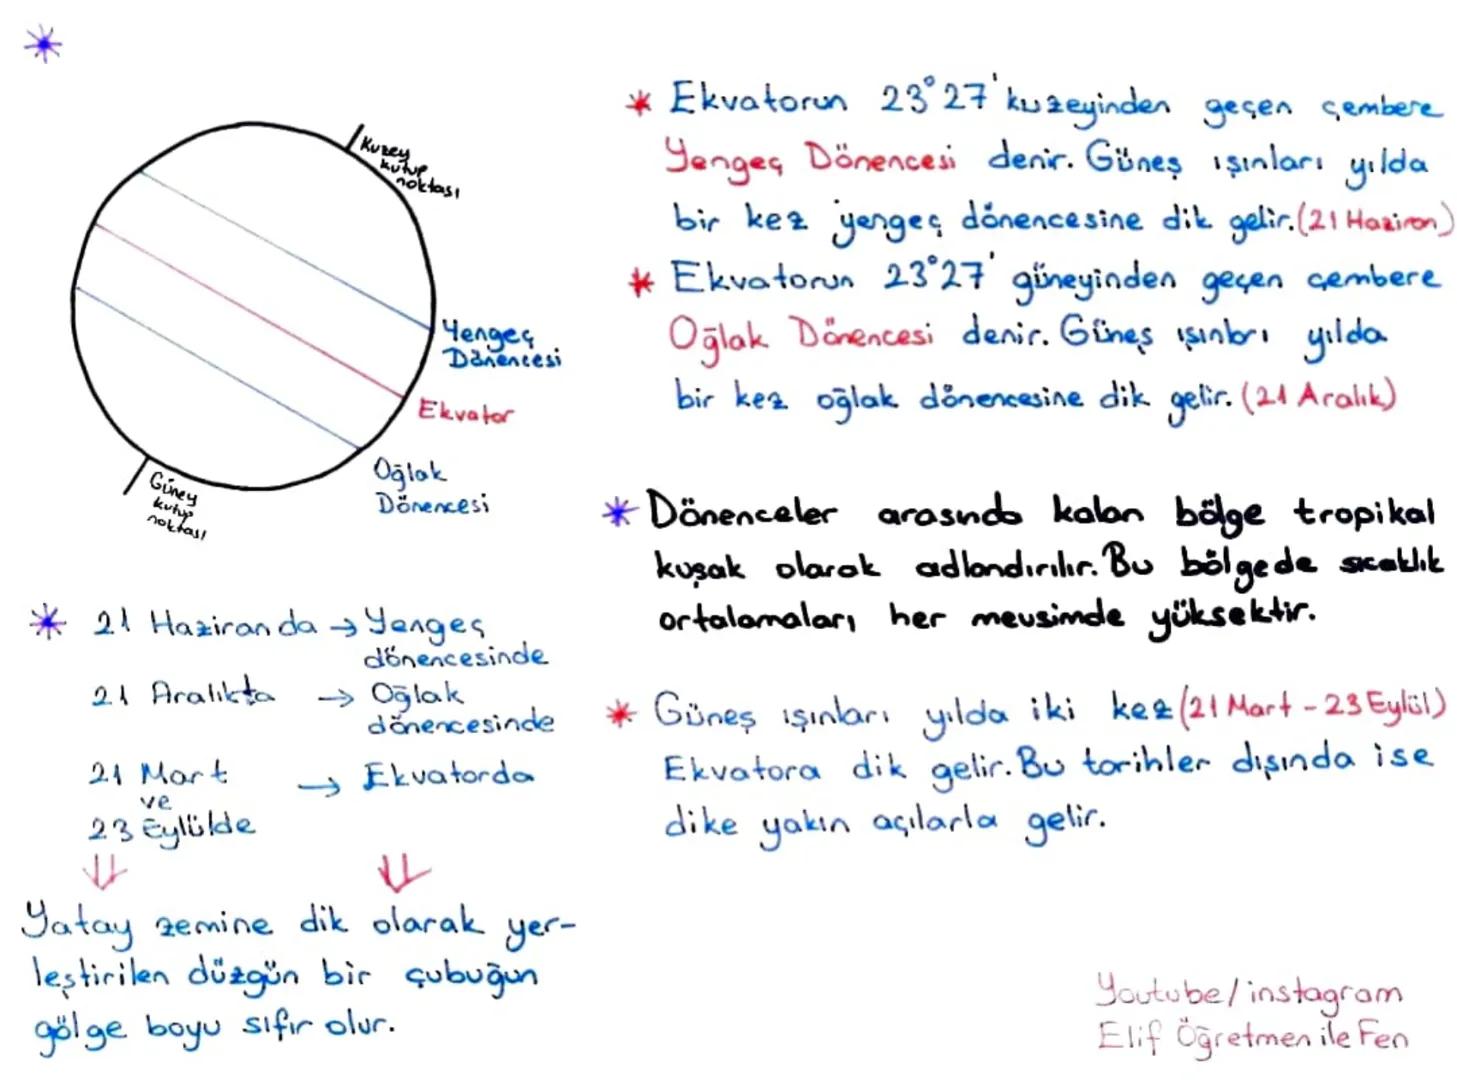 Kuzey
kutup
noktası
Yengeç
Dönencesi
Ekvator
Oğlak
Dönencesi
Güney
kutup
noktası
* 21 Haziranda → Yengeç
dönencesinde
21 Aralıkta → Oğlak
dönencesinde
21 Mart
ve → Ekvatorda
23 Eylülde
Yatay zemine dik olarak yer-
leştirilen düzgün bir çubuğun
gölge boyu sıfır olur.
* Ekvatorun 23°27' kuzeyinden geçen çembere
Yengeç Dönencesi denir. Güneş ışınları yılda
bir kez yengeç dönencesine dik gelir. (21 Haziran)
* Ekvatorun 23°27' güneyinden geçen çembere
Oğlak Dönencesi denir. Güneş ışınları yılda
bir kez oğlak dönencesine dik gelir. (21 Aralık)
* Dönenceler arasında kalan bölge tropikal
kuşak olarak adlandırılır. Bu bölgede sıcaklık
ortalamaları her mevsimde yüksektir.
* Güneş ışınları yılda iki kez (21 Mart - 23 Eylül)
Ekvatora dik gelir. Bu tarihler dışında ise
dike yakın açılarla gelir.
Youtube/instagram
Elif Öğretmen ile Fen